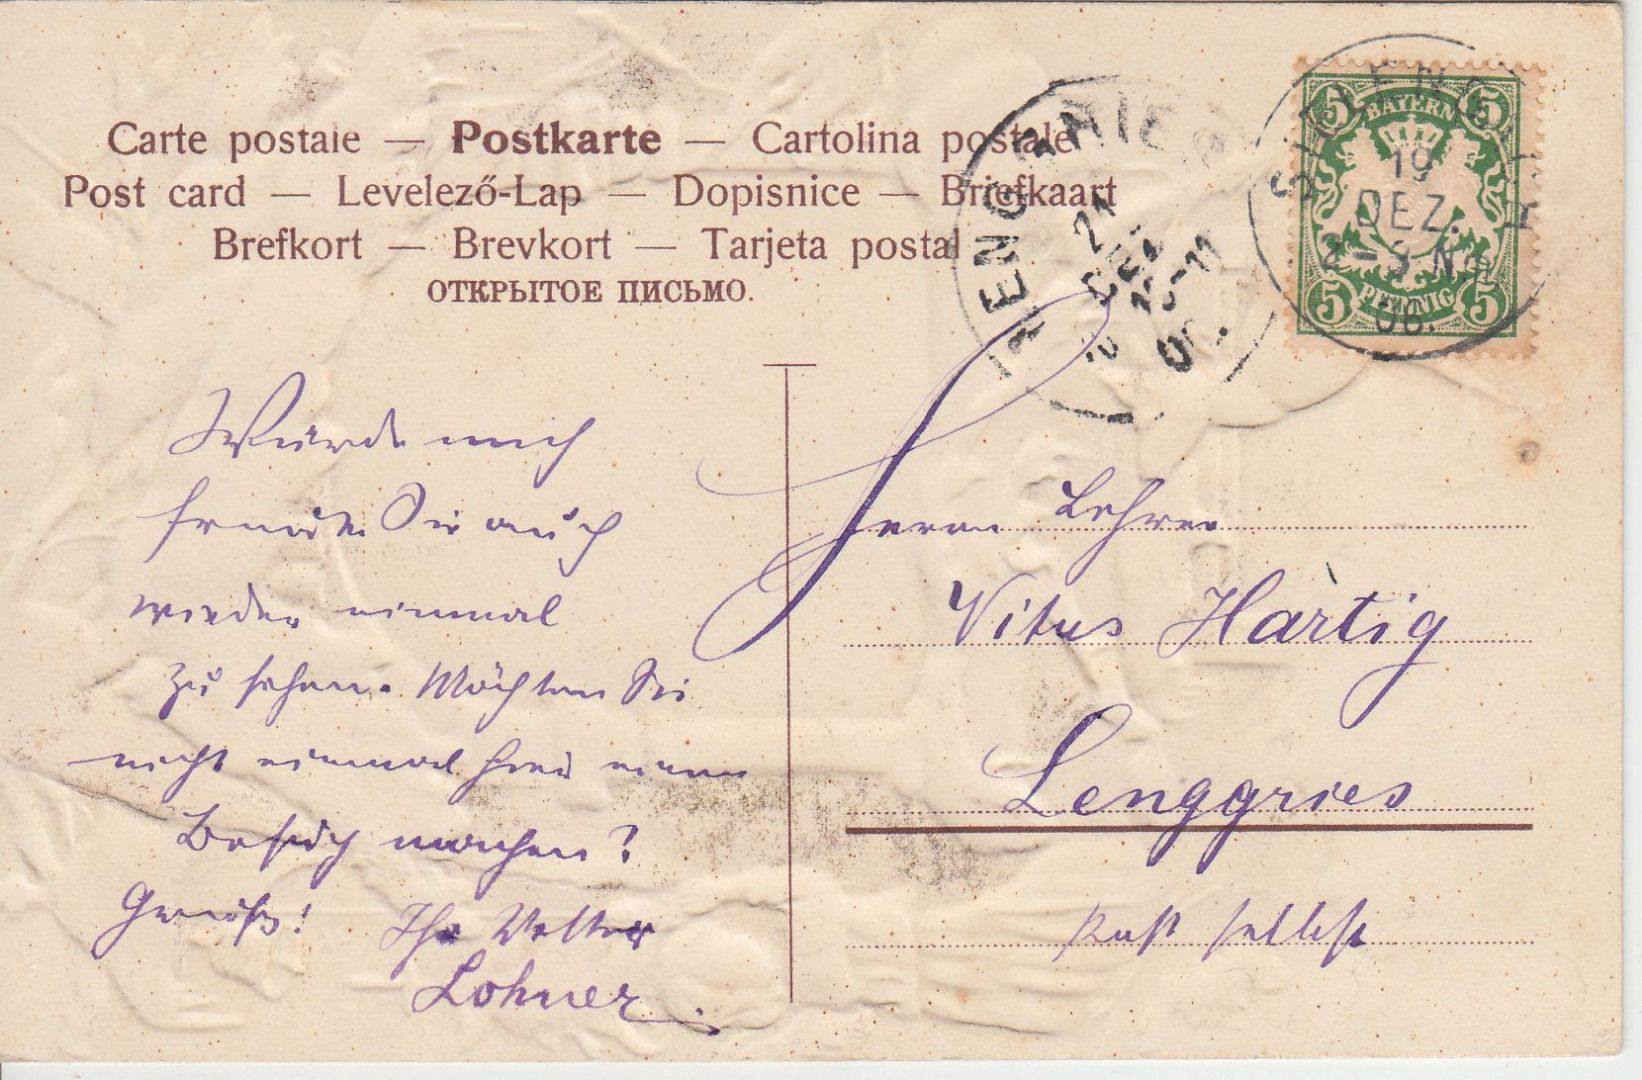 Carte postale — Postkarte — Cartolina postale
Post card — Levelező-Lap — Dopisnice — Briefkaart
Brefkort — Brevkort — Tarjeta postal
ОТКРЫТОЕ ПИСЬМО.
5 BAYERN 5
5 PFENNIG 5
19
DEZ.
2-3 NM
06.
21
DEZ
Würde mich
freuen Sie auch
wieder einmal
zu sehen. Möchten Sie
nicht einmal hier einen
Besuch machen?
Gruß! Ihr Vetter
Lohner
Herrn Lehrer
Vitus Hartig
Lenggries
Post selbst